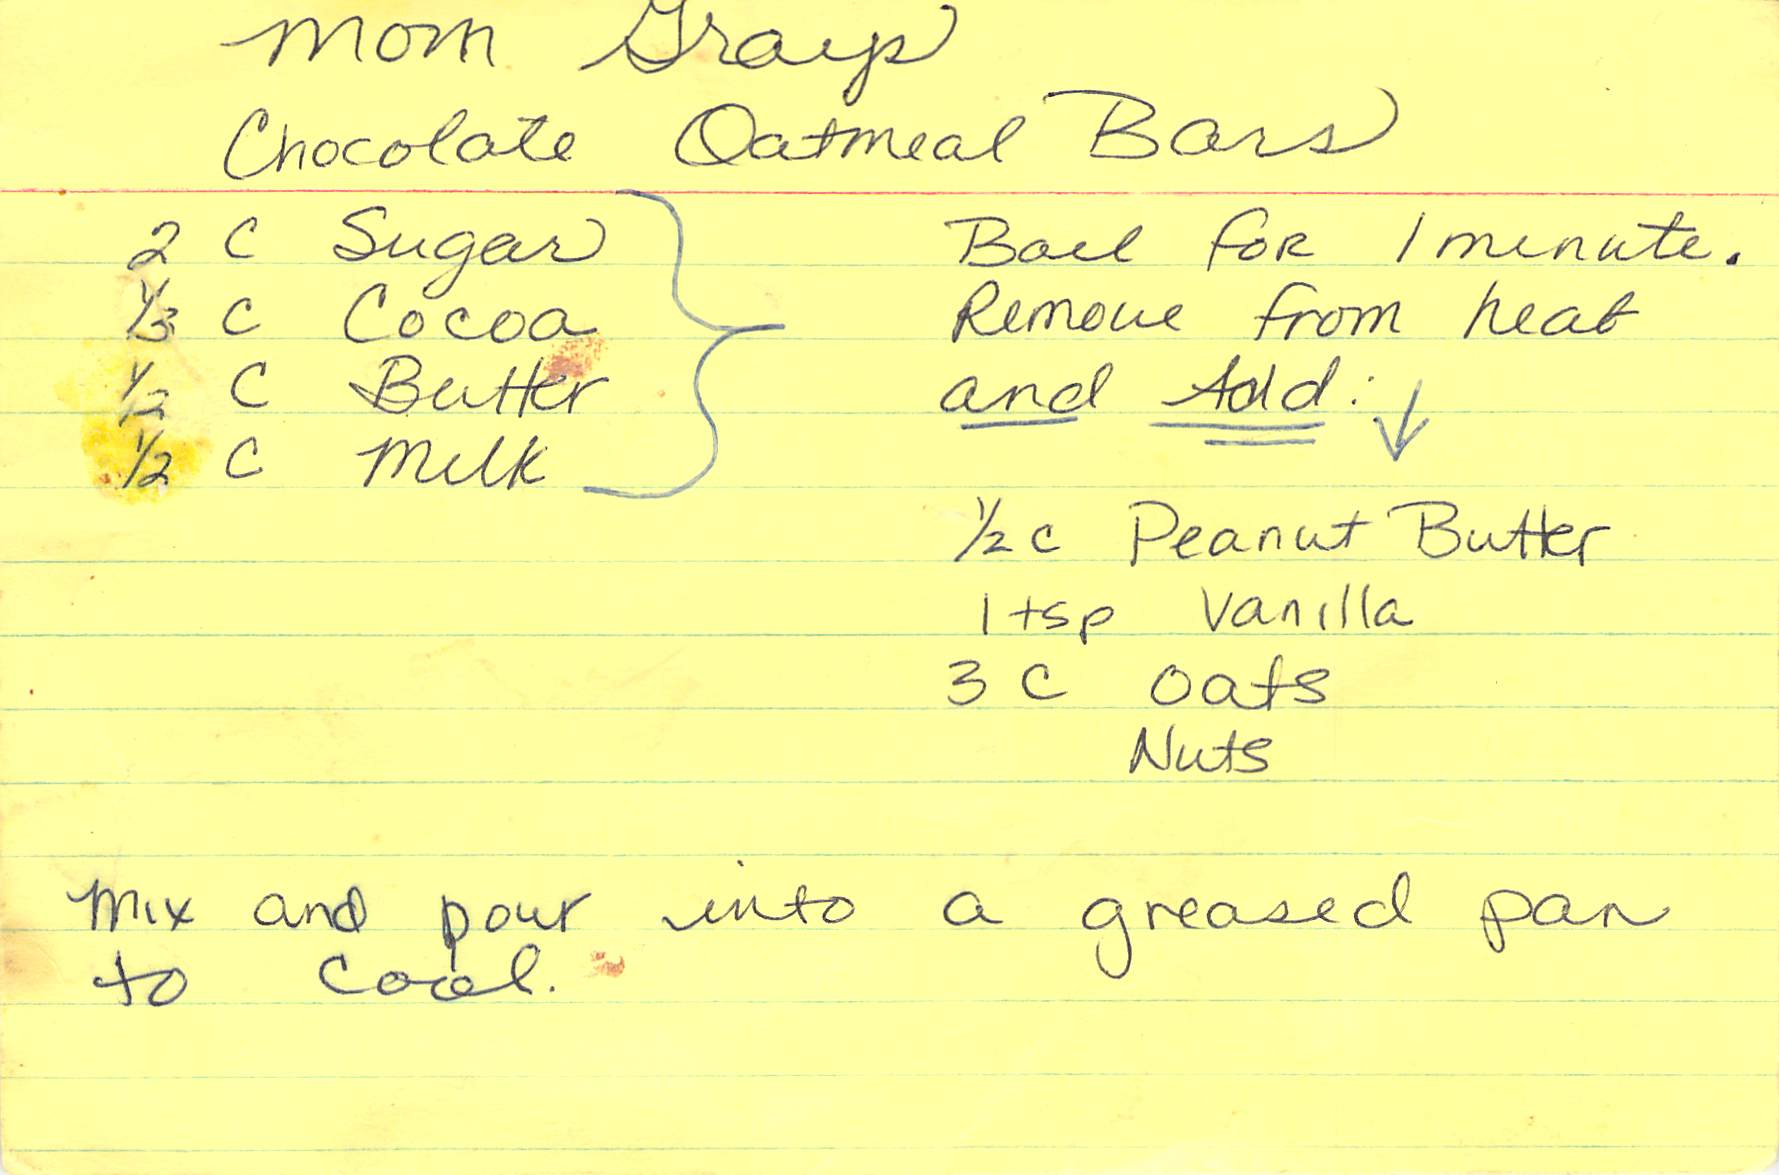 Mom Grays
Chocolate Oatmeal Bars
2 C Sugar
1/3 C Cocoa
1/2 C Butter
1/2 C Milk
Boil for 1 minute.
Remove from heat
and Add:
1/2 c Peanut Butter
1 tsp Vanilla
3 C Oats
Nuts
Mix and pour into a greased pan
to cool.